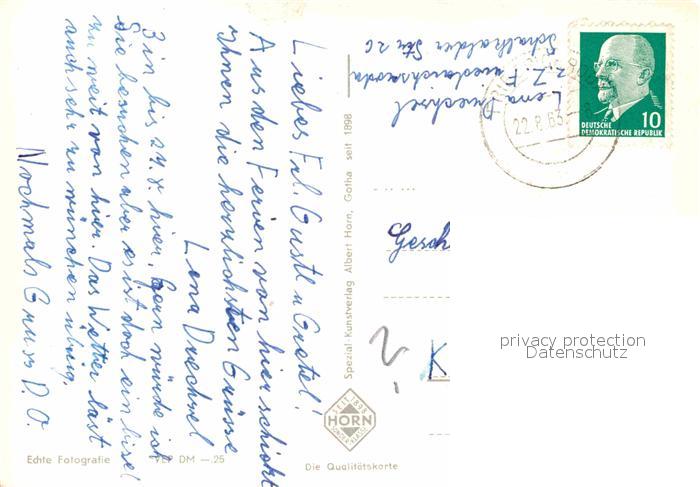 Liebes Frl. Gustl u Gretel!
Aus den Ferien von hier schickt
Ihnen die herzlichsten Grüsse
Lena Drechsel
Bin bis 24.8. hier, gern würde ich
Sie besuchen aber es ist doch ein bisel
zu weit von hier. Das Wetter läst
auch sehr zu wünschen übrig.
Nochmals Gruss D. O.
Echte Fotografie
VEP DM —.25
Spezial-Kunstverlag Albert Horn, Gotha seit 1898
SEIT 1898
HORN
Die Qualitätskarte
Lena Drechsel
z.Z. Friedrichroda
Str 26
22.8.63
10
DEUTSCHE
DEMOKRATISCHE REPUBLIK
Gesch
K
privacy protection
Datenschutz